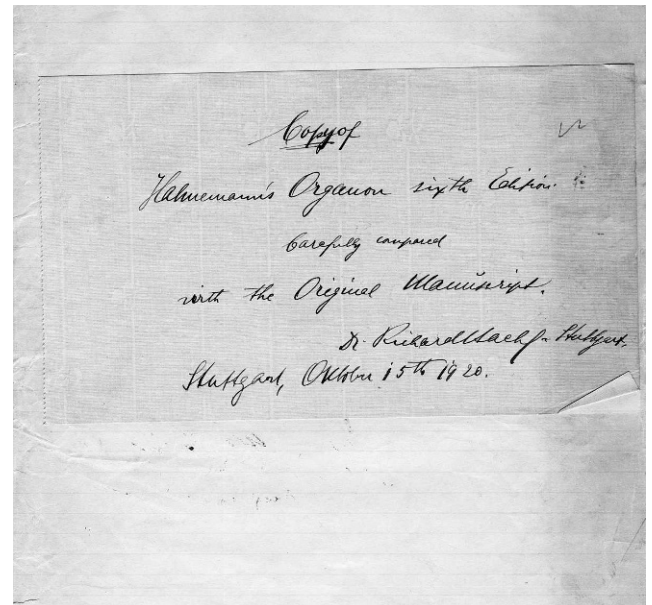 Copy of
Hahnemann's Organon sixth Edition.
Carefully compared
with the Original Manuscript.
Dr. Richard Haehl - Stuttgart.
Stuttgart, Oktober 15th 1920.